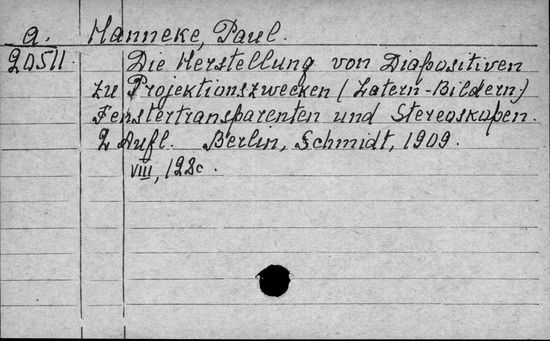 a. Hanneke, Paul.
20511. Die Herstellung von Diapositiven
zu Projektionszwecken (Latern-Bildern)
Fenstertransparenten und Stereoskopen.
2 Aufl. Berlin, Schmidt, 1909.
VIII, 128c.